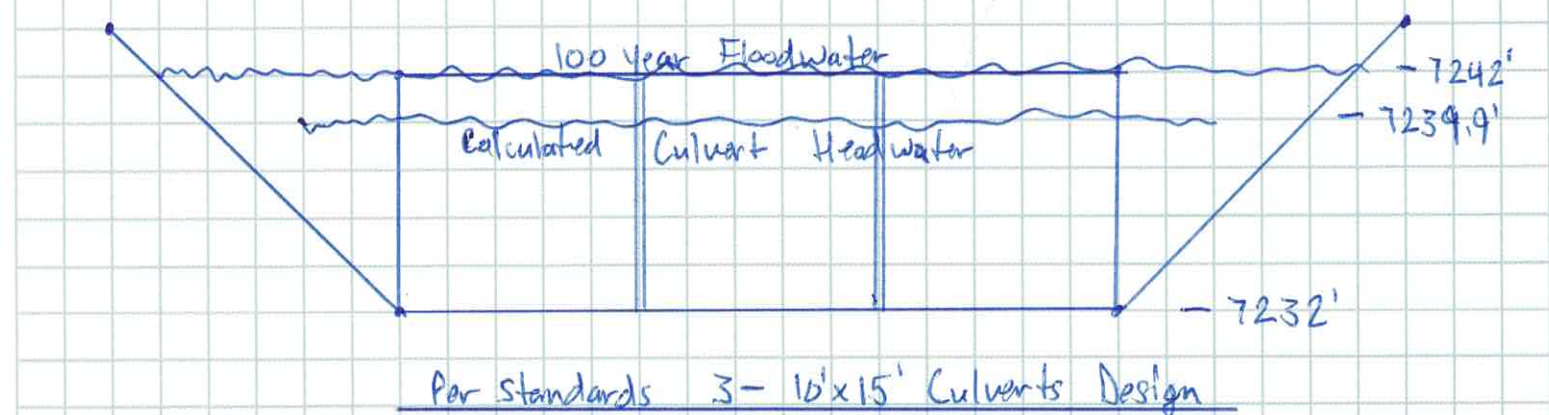 100 year Floodwater
- 7242'
- 7239.9'
Calculated Culvert Headwater
- 7232'
Per Standards 3- 10'x15' Culverts Design